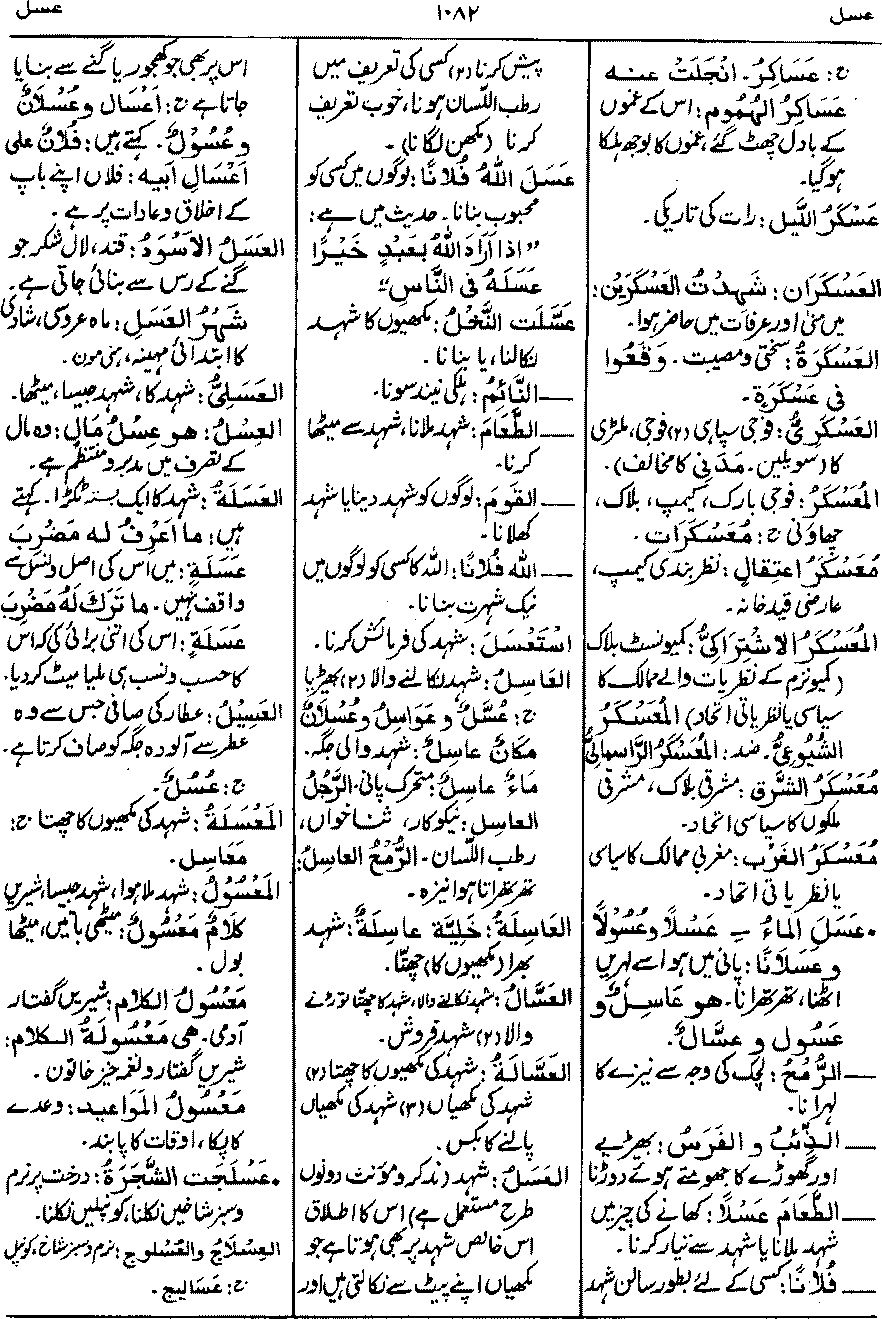 عسل
۱۰۸۲
عسل
ج: عَسَاكِرُ. انْجَلَتْ عنه
عَسَاكِرُ الهُمُومِ: اس کے غموں
کے بادل چھٹ گئے، غموں کا بوجھ ہلکا
ہوگیا۔
عَسْكَرُ اللَّيلِ: رات کی تاریکی۔
العَسْكَرَان: شَهِدْتُ العَسْكَرَيْن:
میں منیٰ اور عرفات میں حاضر ہوا۔
العَسْكَرَةُ: سختی ومصیبت۔ وَقَعُوا
فی عَسْكَرَةٍ۔
العَسْكَرِيُّ: فوجی سپاہی (۲) فوجی، ملٹری
کا (سویلین۔ مَدَنِی کا مخالف)۔
المُعَسْكَرُ: فوجی بارک، کیمپ، بلاک،
چھاؤنی ج: مُعَسْكَرَات۔
مُعَسْكَرُ اعْتِقالٍ: نظر بندی کیمپ،
عارضی قید خانہ۔
المُعَسْكَرُ الاشْتِرَاكِيُّ: کمیونسٹ بلاک
(کمیونزم کے نظریات والے ممالک کا
سیاسی یا نظریاتی اتحاد) المُعَسْكَرُ
الشُّيُوعِيُّ۔ ضد: المُعَسْكَرُ الرَّاسمالِيُّ
مُعَسْكَرُ الشَّرْقِ: مشرقی بلاک، مشرقی
ملکوں کا سیاسی اتحاد۔
مُعَسْكَرُ الغَرْب: مغربی ممالک کا سیاسی
یا نظریاتی اتحاد۔
•عَسَلَ الماءُ ـِ عَسْلًا وعُسُولًا
وعَسَلَانًا: پانی میں ہوا سے لہریں
اٹھنا، تھرتھرانا۔ هو عَاسِلٌ و
عَسُول و عسَّالٌ۔
— الرُّمْحُ: لچک کی وجہ سے نیزے کا
لہرانا۔
— الذِّئبُ و الفَرَسُ: بھیڑیے
اور گھوڑے کا جھومتے ہوئے دوڑنا
— الطَّعَامَ عَسْلًا: کھانے کی چیز میں
شہد ملانا یا شہد سے تیار کرنا۔
— فُلَانًا: کسی کے لئے بطور سالن شہد
پیش کرنا (۲) کسی کی تعریف میں
رطب اللسان ہونا، خوب تعریف
کرنا (مکھن لگانا)۔
عَسَلَ اللّٰهُ فُلَانًا: لوگوں میں کسی کو
محبوب بنانا۔ حدیث میں ہے:
”اذا اَرَادَ اللّٰهُ بِعَبْدٍ خَيْرًا
عَسَلَهُ فی النَّاس“
عَسَّلَت النَّحْلُ: مکھیوں کا شہد
نکالنا، یا بنانا۔
— النَّائِمُ: ہلکی نیند سونا۔
— الطَّعَامَ: شہد ملانا، شہد سے میٹھا
کرنا۔
— القَوْمَ: لوگوں کو شہد دینا یا شہد
کھلانا۔
— اللّٰه فُلَانًا: اللہ کا کسی کو لوگوں میں
نیک شہرت بنانا۔
اسْتَعْسَلَ: شہد کی فرمائش کرنا۔
العَاسِلُ: شہد نکالنے والا (۲) بھیڑیا
ج: عُسَّلٌ و عَوَاسِلُ وعُسْلَانٌ
مَكَانٌ عاسِلٌ: شہد والی جگہ۔
مَاءٌ عاسِلٌ: متحرک پانی۔ الرَّجُلُ
العاسِل: نیکوکار، ثناخواں،
رطب اللسان۔ الرُّمْحُ العاسِلُ:
تھرتھراتا ہوا نیزہ۔
العَاسِلَةُ: خَلِيَّة عاسِلَةٌ: شہد
بھرا (مکھیوں کا) چھتّا۔
العَسَّالُ: شہد نکالنے والا، شہد کا چھتّا توڑنے
والا (۲) شہد فروش۔
العَسَّالَةُ: شہد کی مکھیوں کا چھتا (۲)
شہد کی مکھیاں (۳) شہد کی مکھیاں
پالنے کا بکس۔
العَسَلُ: شہد (مذکر و مؤنث دونوں
طرح مستعمل ہے) اس کا اطلاق
اس خالص شہد پر بھی ہوتا ہے جو
مکھیاں اپنے پیٹ سے نکالتی ہیں اور
اس پر بھی جو کھجور یا گنے سے بنایا
جاتا ہے ج: اَعْسَال وعُسْلَانٌ
وعُسُوْلٌ۔ کہتے ہیں: فُلَانٌ علی
اَعْسَالِ اَبِيه: فلاں اپنے باپ
کے اخلاق وعادات پر ہے۔
العَسَلُ الاَسْوَدُ: قند، لال شکر جو
گنے کے رس سے بنائی جاتی ہے۔
شَهْرُ العَسَلِ: ماہ عروسی، شادی
کا ابتدائی مہینہ، ہنی مون۔
العَسَلِيُّ: شہد کا، شہد جیسا، میٹھا۔
العِسْلُ: هو عِسْلُ مَالٍ: وہ مال
کے تصرف میں مدبر و منتظم ہے۔
العَسَلَةُ: شہد کا ایک بستہ ٹکڑا۔ کہتے
ہیں: ما اَعْرِفُ له مَضْرِبَ
عَسَلَةٍ: میں اس کی اصل ونسل سے
واقف نہیں۔ ما تَرَكَ لَهُ مَضْرِبَ
عَسَلَةٍ: اس کی اتنی برائی کی کہ اس
کا حسب ونسب ہی ملیا میٹ کردیا۔
العَسِيْلُ: عطار کی صافی جس سے وہ
عطر سے آلودہ جگہ کو صاف کرتا ہے۔
ج: عُسُلٌ۔
المَعْسَلَةُ: شہد کی مکھیوں کا چھتا ج:
مَعَاسِل۔
المَعْسُوْلُ: شہد ملا ہوا، شہد جیسا، شیریں
كلَامٌ مَعْسُولٌ: میٹھی باتیں، میٹھا
بول۔
مَعْسُولُ الكلام: شیریں گفتار
آدمی۔ هی مَعْسُولَةُ الكلام:
شیریں گفتار و نغمہ خیز خاتون۔
مَعْسُولُ المَواعِيد: وعدے
کا پکا، اوقات کا پابند۔
•عَسْلَجَت الشَّجَرَةُ: درخت پر نرم
وسبز شاخیں نکلنا، کونپلیں نکلنا۔
العِسْلَاجُ والعُسْلُوج: نرم وسبز شاخ، کونپل
ج: عَسَالِيج۔